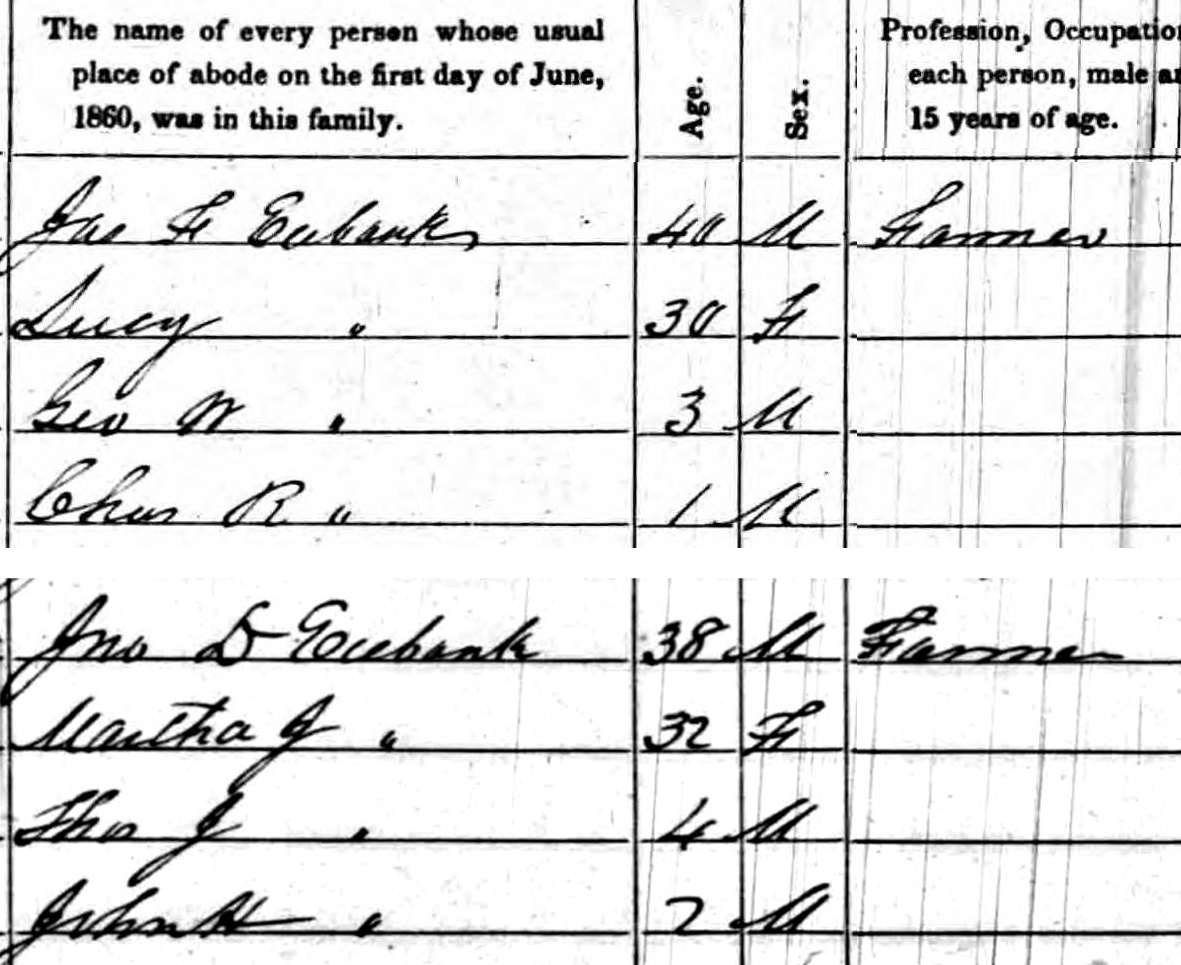 The name of every person whose usual
place of abode on the first day of June,
1860, was in this family.
Age.
Sex.
Profession, Occupatio
each person, male a
15 years of age.
Jas F Eubanks 40 M Farmer
Lucy " 30 F
Geo W " 3 M
Chas R " 1 M
Jno D Eubank 38 M Farmer
Martha J " 32 F
Thos J " 4 M
John H " 2 M